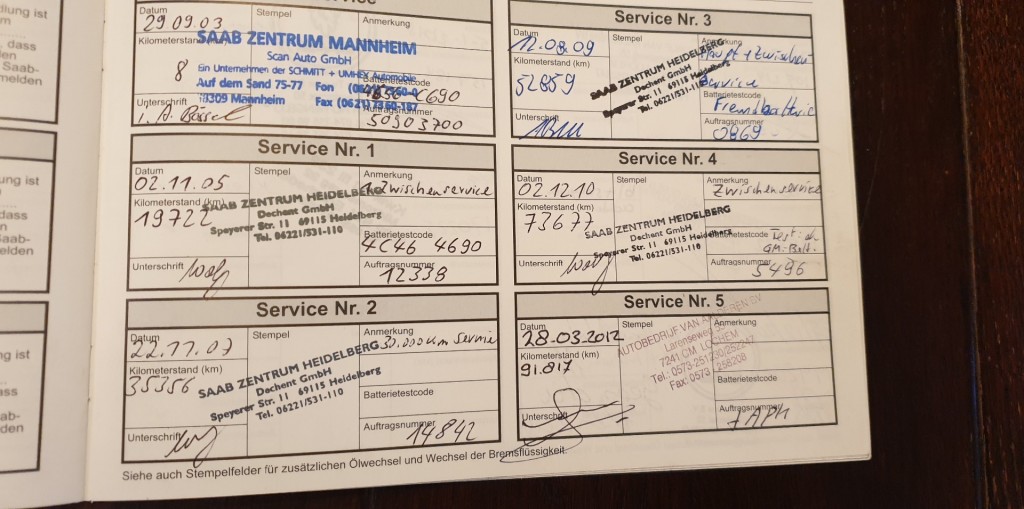 llung ist
dass
Saab-
melden
ung ist
dass
n
aab-
elden
g ist
ass
ab-
den
Datum
29.09.03
Stempel
Anmerkung
Kilometerstand
8
SAAB ZENTRUM MANNHEIM
Scan Auto GmbH
Ein Unternehmen der SCHMITT + UMHEX Automobile
Auf dem Sand 75-77 Fon
68309 Mannheim Fax
Batterietestcode
4690
Unterschrift
i. A.
Auftragsnummer
50903700
Service Nr. 1
Datum
02.11.05
Stempel
Anmerkung
Zwischenservice
Kilometerstand (km)
19722
SAAB ZENTRUM HEIDELBERG
Dechent GmbH
Speyerer Str. 11 69115 Heidelberg
Tel. 06221/531-110
Batterietestcode
4C46 4690
Unterschrift
Auftragsnummer
12338
Service Nr. 2
Datum
22.11.07
Stempel
Anmerkung
30.000 km Service
Kilometerstand (km)
35356
SAAB ZENTRUM HEIDELBERG
Dechent GmbH
Speyerer Str. 11 69115 Heidelberg
Tel. 06221/531-110
Batterietestcode
Unterschrift
Auftragsnummer
14842
Service Nr. 3
Datum
12.08.09
Stempel
Anmerkung
Haupt + Zwischen
Service
Kilometerstand (km)
52859
SAAB ZENTRUM HEIDELBERG
Dechent GmbH
Speyerer Str. 11 69115 Heidelberg
Tel. 06221/531-110
Batterietestcode
Fremdbatterie
Unterschrift
Auftragsnummer
0869
Service Nr. 4
Datum
02.12.10
Stempel
Anmerkung
Zwischenservice
Kilometerstand (km)
73677
SAAB ZENTRUM HEIDELBERG
Dechent GmbH
Speyerer Str. 11 69115 Heidelberg
Tel. 06221/531-110
Batterietestcode
GM-Batt.
Unterschrift
Auftragsnummer
5496
Service Nr. 5
Datum
28-03-2012
Stempel
Anmerkung
Kilometerstand (km)
91.817
AUTOBEDRIJF VAN
Larenseweg
7241 CM LOCHEM
Tel.: 0573-251230/252247
Fax: 0573 258208
Batterietestcode
Unterschrift
Auftragsnummer
7 APK
Siehe auch Stempelfelder für zusätzlichen Ölwechsel und Wechsel der Bremsflüssigkeit.